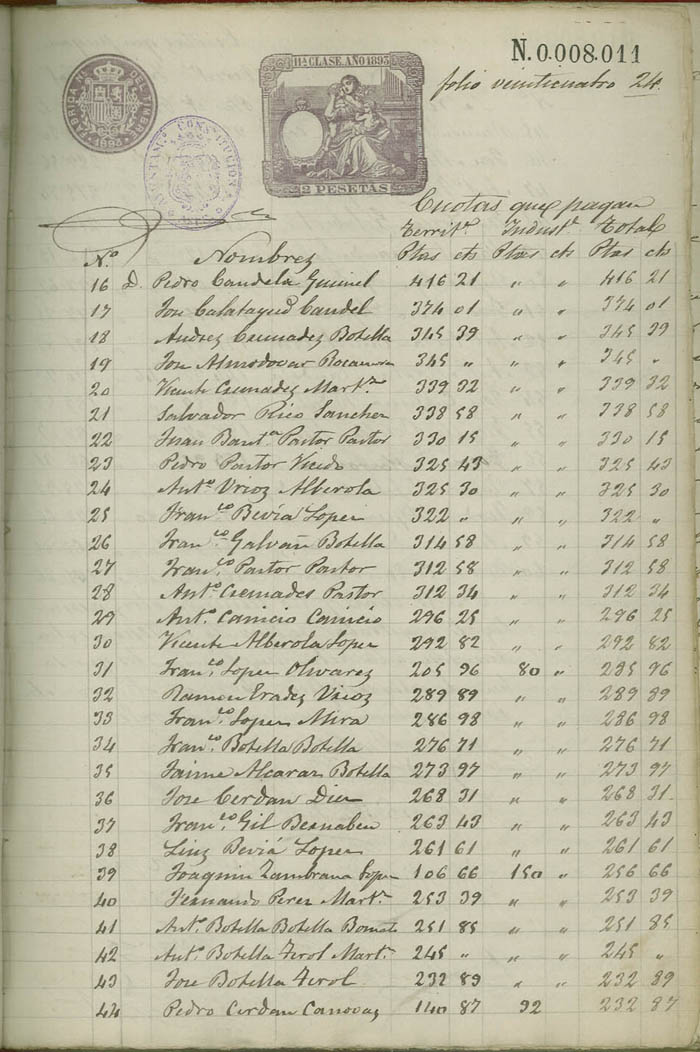 N.0.008.011
FABRICA NAL DEL TIMBRE
1893
11ª CLASE. AÑO 1893
2 PESETAS
CONSTITUCIONAL
folio veinticuatro 24.
Cuotas que pagan
Territl. Industl. Total
Nº. Nombres Ptas cts Ptas cts Ptas cts
16 D. Pedro Candela 416 21 " " 416 21
17 Jose Calatayud Candel 374 01 " " 374 01
18 Andres Cremadez Botella 345 39 " " 345 39
19 Jose Almodovar Rocamora 345 " " " 345 "
20 Vicente Cremadez Martnz 339 32 " " 339 32
21 Salvador Rico Sanchez 338 58 " " 338 58
22 Juan Bauta. Pastor Pastor 330 15 " " 330 15
23 Pedro Pastor Vicedo 325 43 " " 325 43
24 Anto. Urioz Alberola 325 30 " " 325 30
25 Franco. Beviá Lopez 322 " " " 322 "
26 Franco. Galvañ Botella 314 58 " " 314 58
27 Franco. Pastor Pastor 312 58 " " 312 58
28 Anto. Cremades Pastor 312 34 " " 312 34
29 Anto. Canicio Canicio 296 25 " " 296 25
30 Vicente Alberola Lopez 292 82 " " 292 82
31 Franco. Lopez Olivarez 205 96 80 " 285 96
32 Ramon Eradez Urioz 289 89 " " 289 89
33 Franco. Lopez Mira 286 98 " " 286 98
34 Franco. Botella Botella 276 71 " " 276 71
35 Jaime Alcaraz Botella 273 97 " " 273 97
36 Jose Cerdan Diez 268 31 " " 268 31
37 Franco. Gil Bernabeu 263 43 " " 263 43
38 Luiz Beviá Lopez 261 61 " " 261 61
39 Joaquin Zambrana Lopez 106 66 150 " 256 66
40 Fernando Perez Martz. 253 39 " " 253 39
41 Anto. Botella Botella 251 85 " " 251 85
42 Anto. Botella Ferol Martz. 245 " " " 245 "
43 Jose Botella Ferol 232 89 " " 232 89
44 Pedro Cerdan Canovaz 140 87 92 232 87